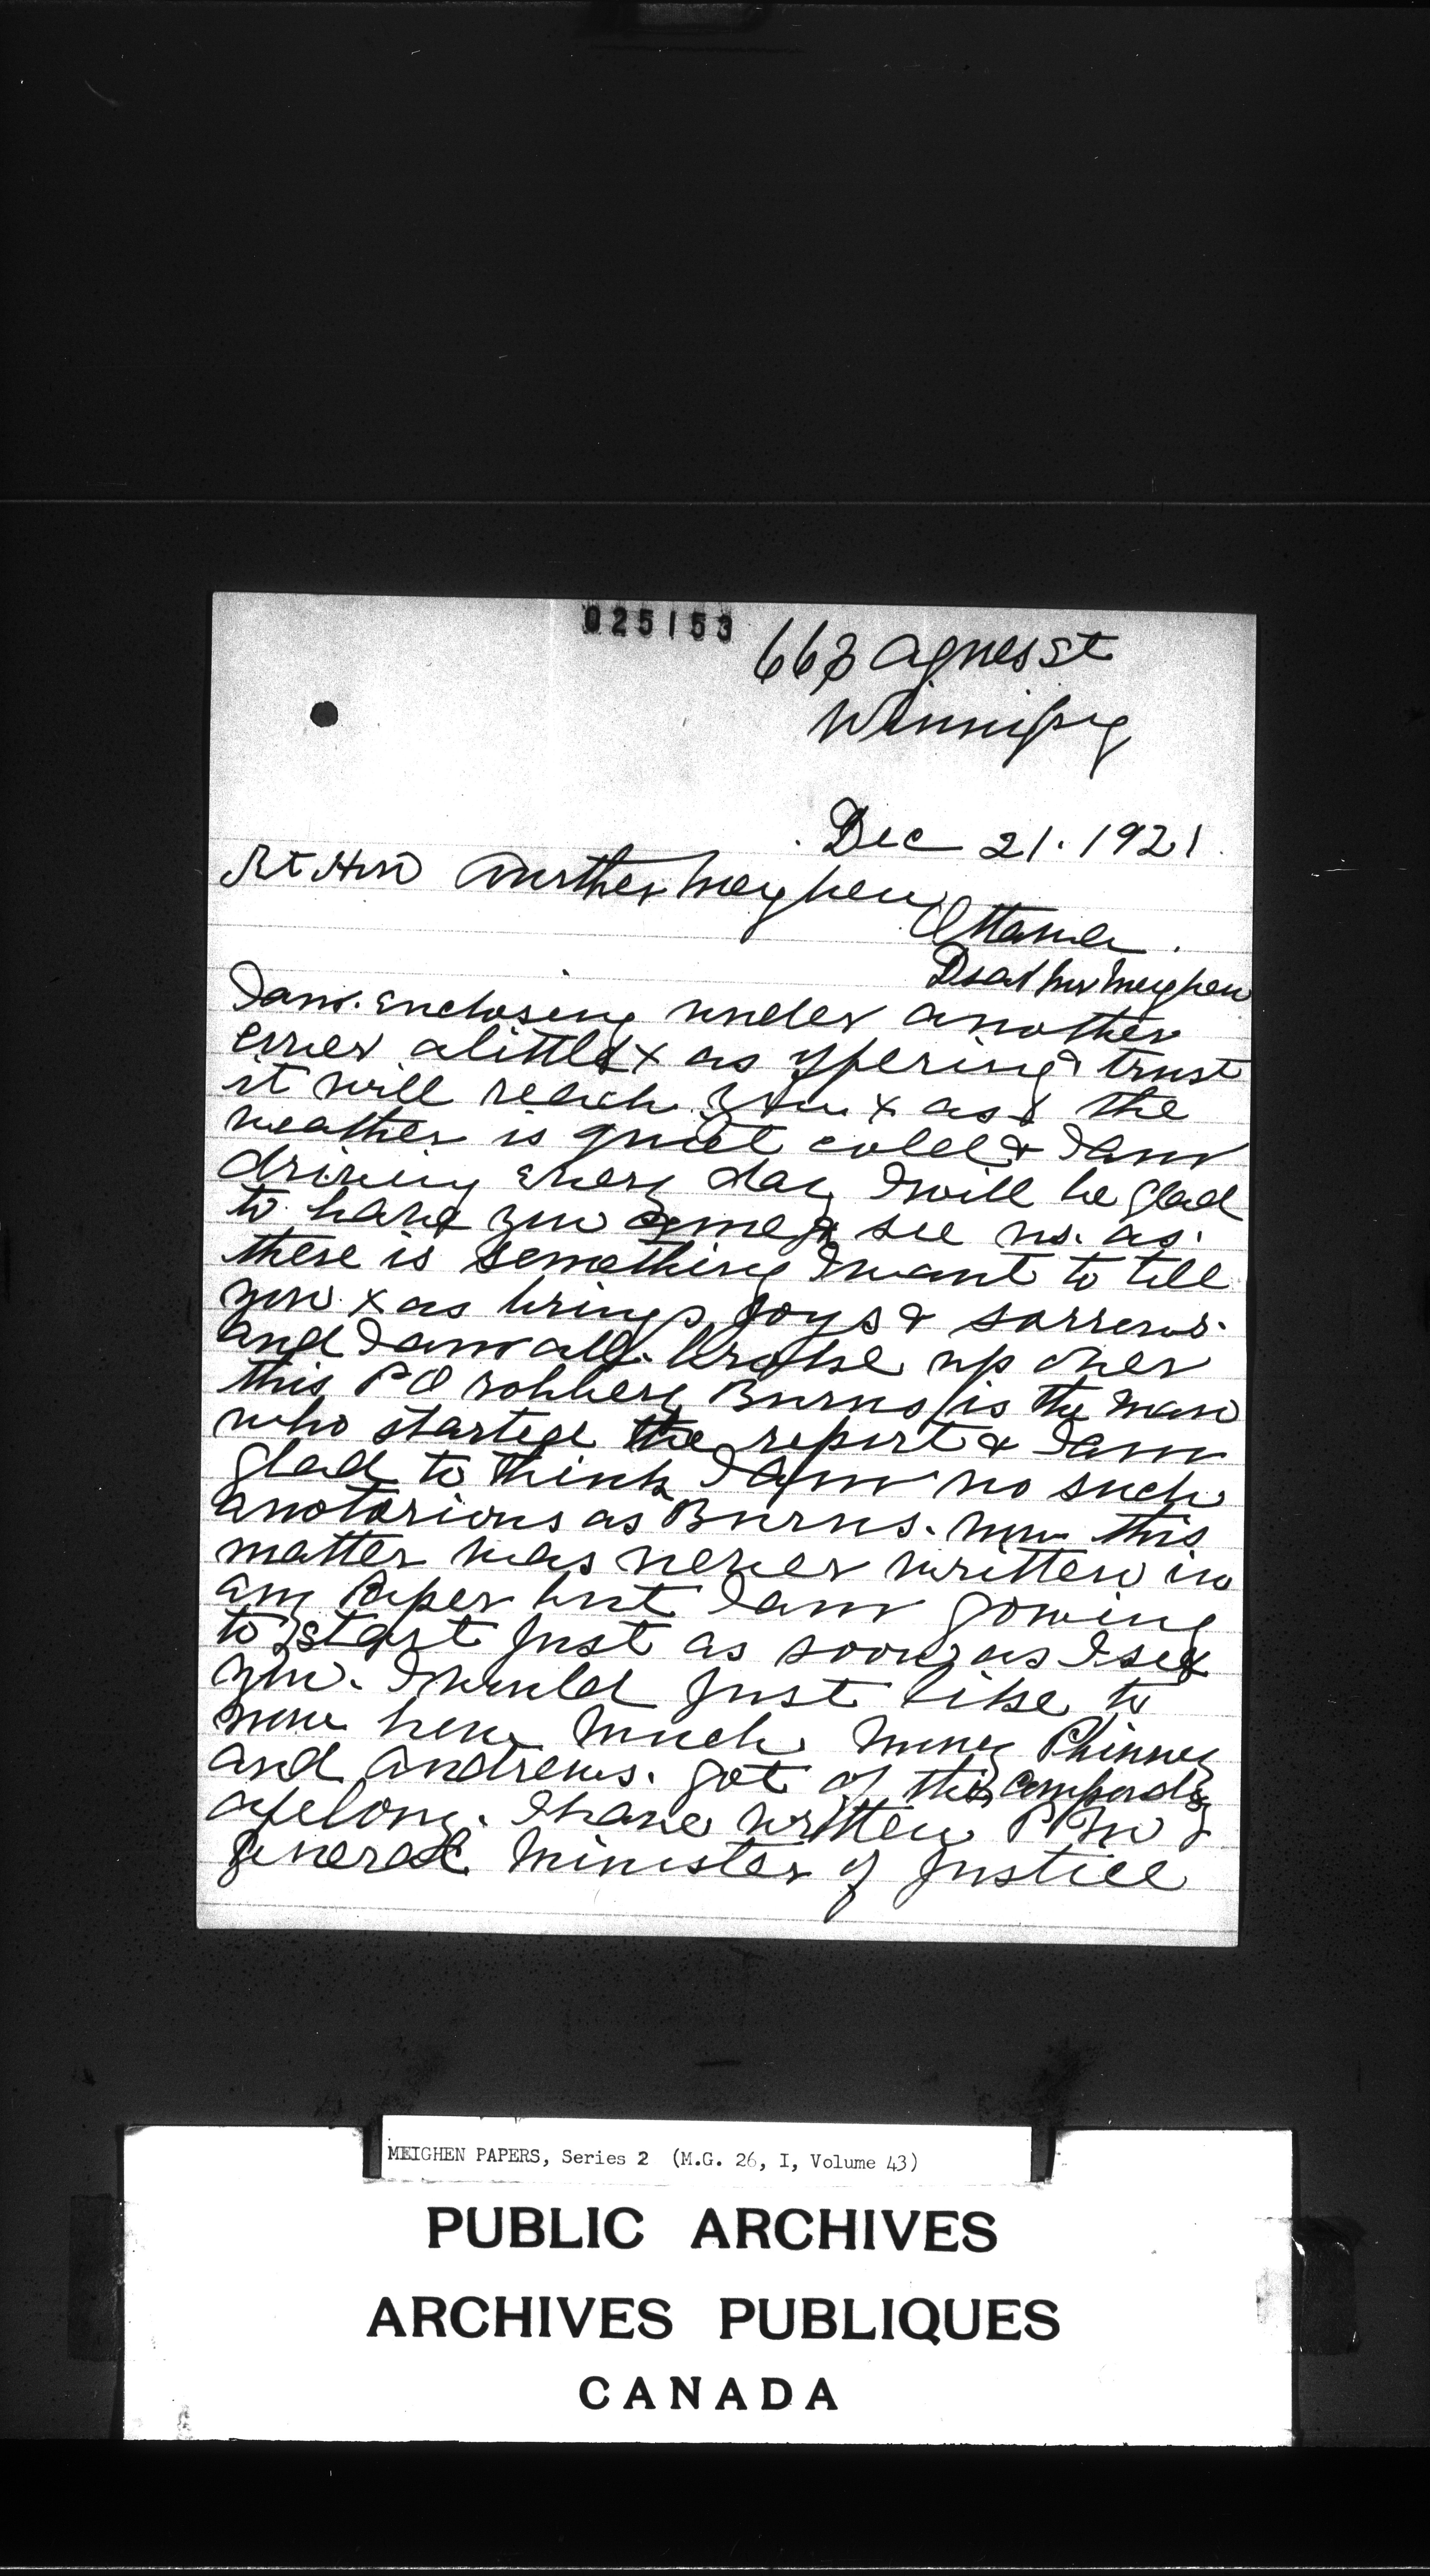 025153
663 Agnes St
Winnipeg
Dec 21. 1921.
Rt Hon Aurther Meighen
Ottawa.
Dear Mr Meighen
I am. enclosing under another
cover a little X as offering & trust
it will reach you X as & the
weather is quiet cold & I am
driving every day I will be glad
to have you come & see us. as.
there is something I want to tell
you X as brings joys & sorrows.
and I am all. broke up over
this P O robbery Burns is the man
who started the report & I am
glad to think I am no such
a notorious as Burns. now this
matter was never written in
any Paper but I am gowing
to start just as soon as I see
you. I would just like to
now how much money Phinney
and Andrews. got of this
afelony. I have written P M
General Minister of Justice
MEIGHEN PAPERS, Series 2 (M.G. 26, I, Volume 43)
PUBLIC ARCHIVES
ARCHIVES PUBLIQUES
CANADA